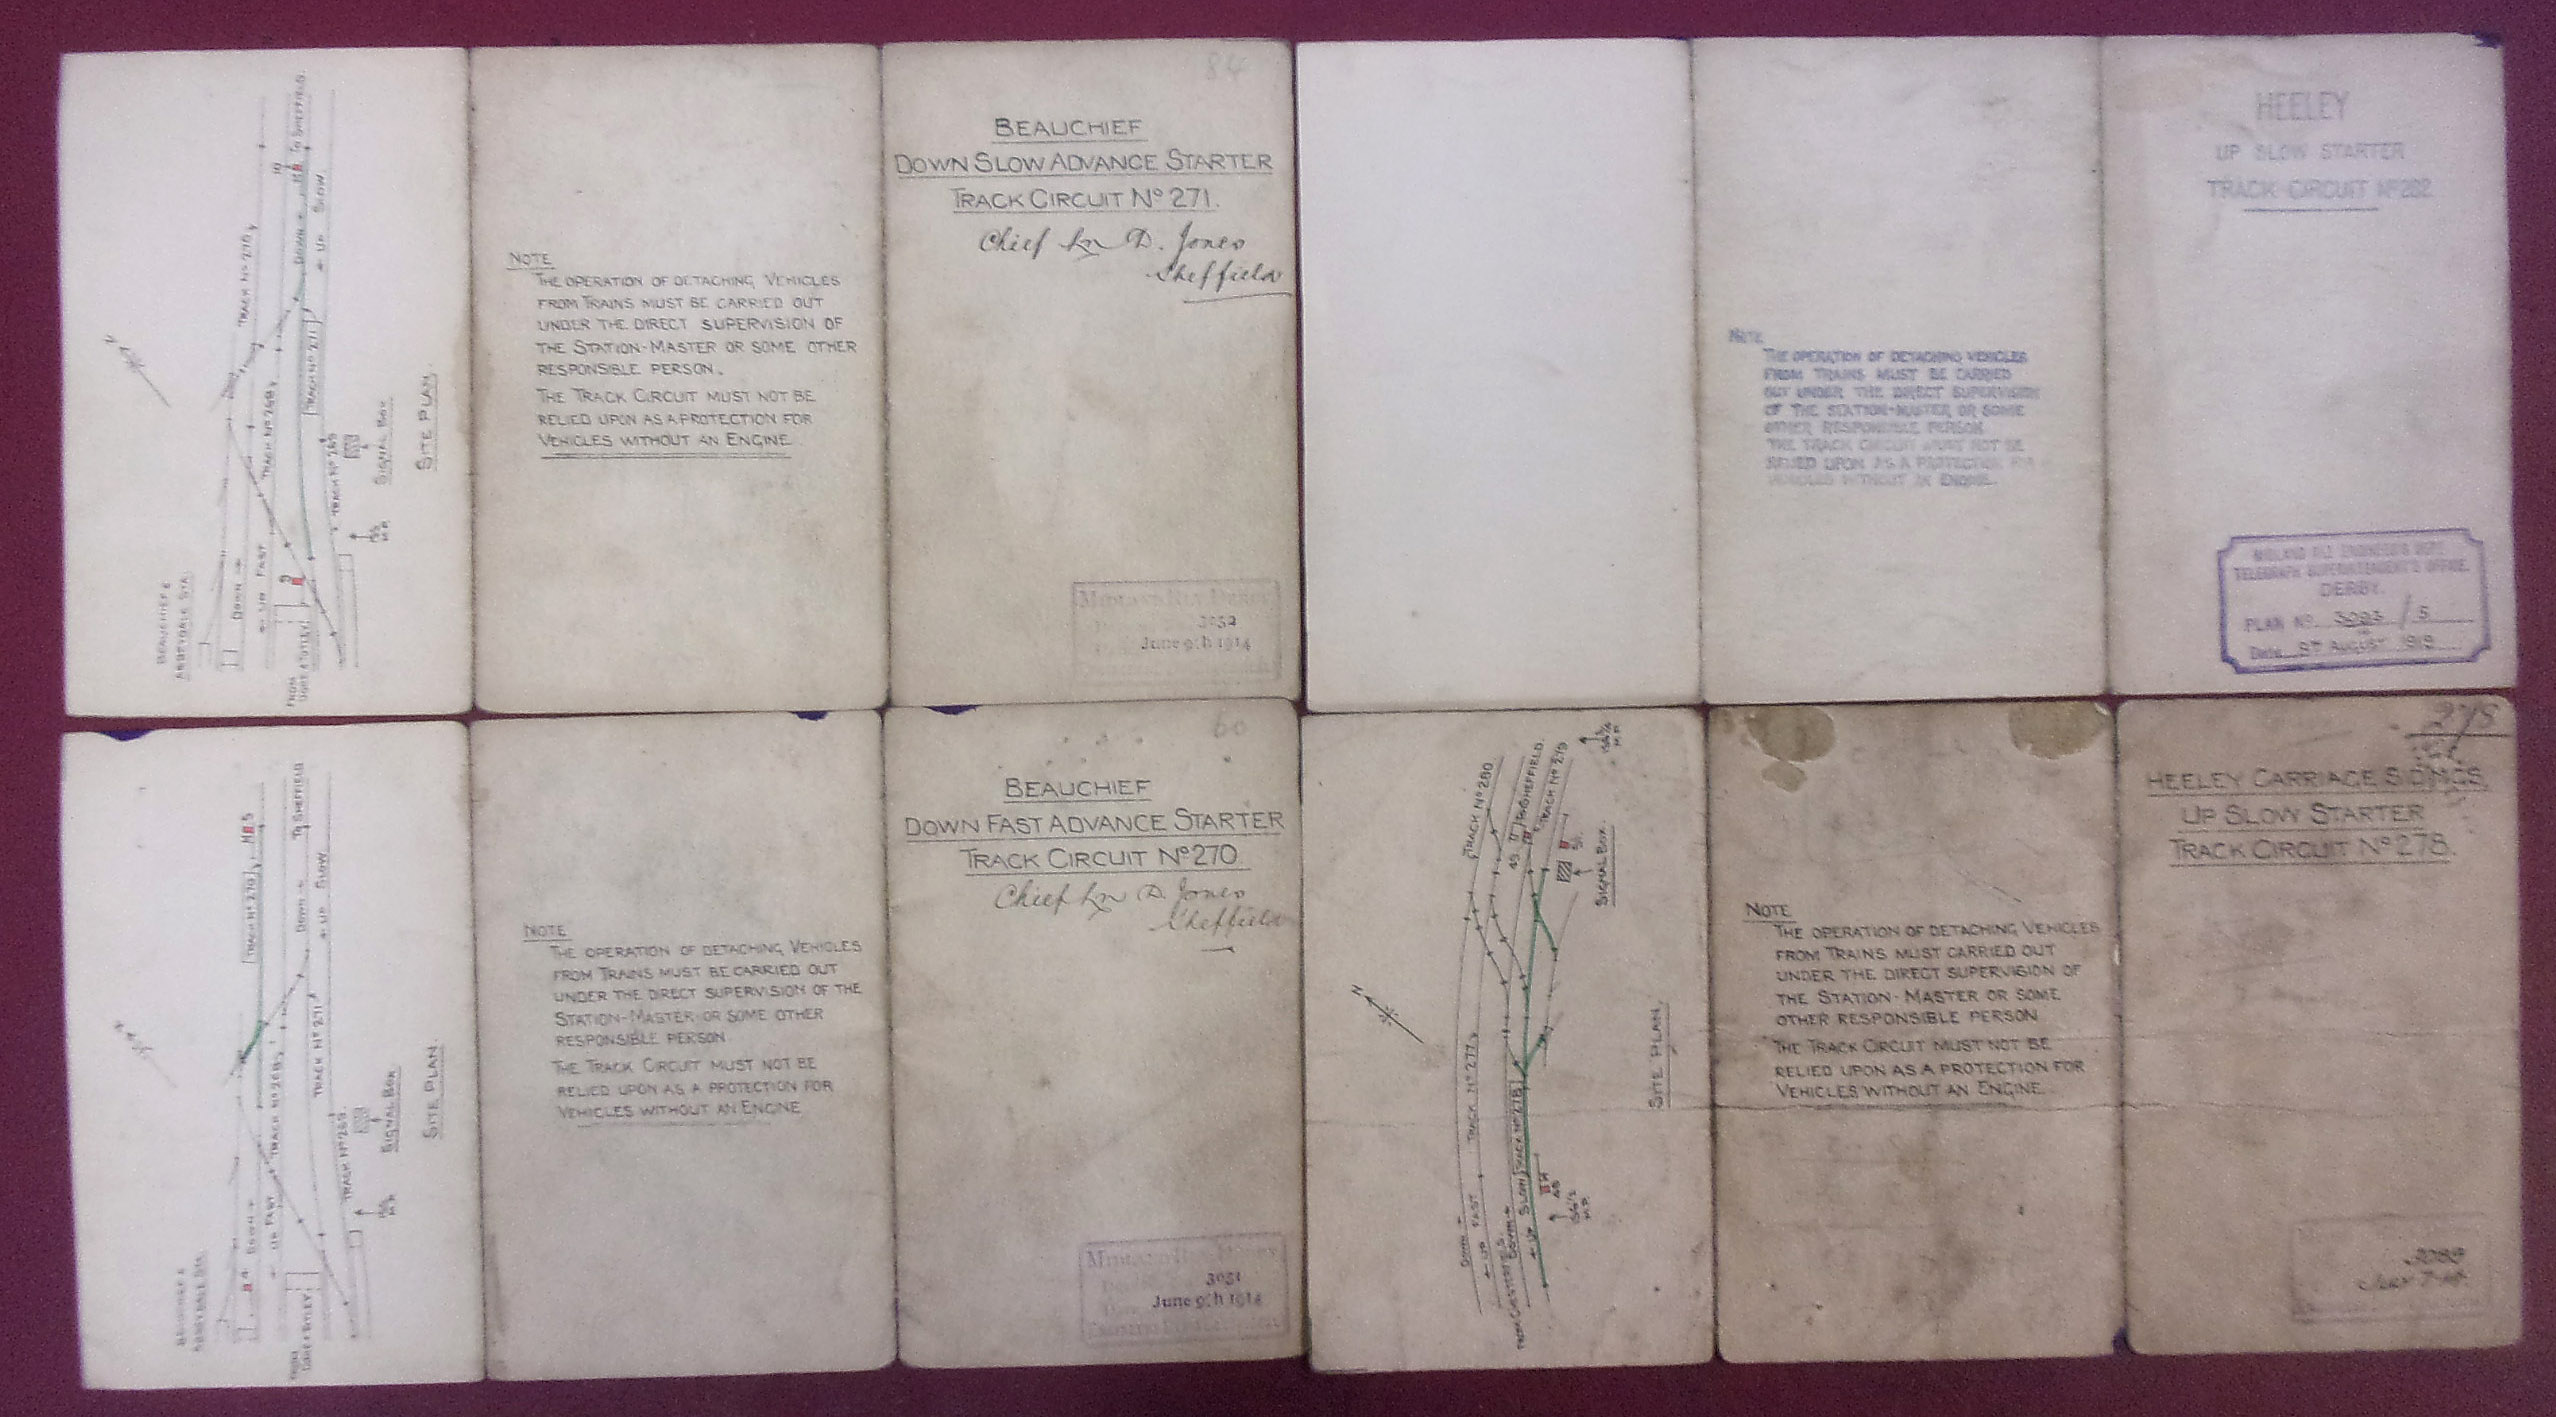 BEAUCHIEF &
ABBEYDALE STA.
DOWN →
← UP FAST
FROM
DORE & TOTLEY
TRACK Nº 270
TRACK Nº 268
TRACK Nº 271
TRACK Nº 269
DOWN →
← UP SLOW
TO SHEFFIELD.
M.P.
SIGNAL BOX
SITE PLAN.
N
NOTE
THE OPERATION OF DETACHING VEHICLES
FROM TRAINS MUST BE CARRIED OUT
UNDER THE DIRECT SUPERVISION OF
THE STATION-MASTER OR SOME OTHER
RESPONSIBLE PERSON.
THE TRACK CIRCUIT MUST NOT BE
RELIED UPON AS A PROTECTION FOR
VEHICLES WITHOUT AN ENGINE.
84
BEAUCHIEF
DOWN SLOW ADVANCE STARTER
TRACK CIRCUIT Nº 271.
Chief Ln D. Jones
Sheffield
MIDLAND RLY DERBY
3052
June 9th 1914
NOTE
THE OPERATION OF DETACHING VEHICLES
FROM TRAINS MUST BE CARRIED
OUT UNDER THE DIRECT SUPERVISION
OF THE STATION-MASTER OR SOME
OTHER RESPONSIBLE PERSON.
THE TRACK CIRCUIT MUST NOT BE
RELIED UPON AS A PROTECTION FOR
VEHICLES WITHOUT AN ENGINE.
HEELEY
UP SLOW STARTER
TRACK CIRCUIT Nº 282
MIDLAND RLY. ENGINEER'S DEPT.
TELEGRAPH SUPERINTENDENT'S OFFICE.
DERBY.
PLAN Nº 3093/5
Date 9TH AUGUST 1919
BEAUCHIEF &
ABBEYDALE STA.
DOWN →
← UP FAST
FROM
DORE & TOTLEY
TRACK Nº 270
TRACK Nº 268
TRACK Nº 271
TRACK Nº 269
DOWN →
← UP SLOW
TO SHEFFIELD
M.P.
SIGNAL BOX
SITE PLAN.
NOTE
THE OPERATION OF DETACHING VEHICLES
FROM TRAINS MUST BE CARRIED OUT
UNDER THE DIRECT SUPERVISION OF THE
STATION-MASTER OR SOME OTHER
RESPONSIBLE PERSON
THE TRACK CIRCUIT MUST NOT BE
RELIED UPON AS A PROTECTION FOR
VEHICLES WITHOUT AN ENGINE
60
BEAUCHIEF
DOWN FAST ADVANCE STARTER
TRACK CIRCUIT Nº 270.
Chief Ln D. Jones
Sheffield
MIDLAND RLY DERBY
3051
June 9th 1914
DOWN →
← UP FAST
FROM CHESTERFIELD
DOWN →
← UP SLOW
TRACK Nº 277
TRACK Nº 278
TRACK Nº 280
TO SHEFFIELD.
TRACK Nº 279
49
51
48
156½
M.P.
M.P.
SIGNAL BOX.
SITE PLAN.
N
NOTE
THE OPERATION OF DETACHING VEHICLES
FROM TRAINS MUST CARRIED OUT
UNDER THE DIRECT SUPERVISION OF
THE STATION-MASTER OR SOME
OTHER RESPONSIBLE PERSON
THE TRACK CIRCUIT MUST NOT BE
RELIED UPON AS A PROTECTION FOR
VEHICLES WITHOUT AN ENGINE.
278
HEELEY CARRIAGE SDNGS.
UP SLOW STARTER
TRACK CIRCUIT Nº 278.